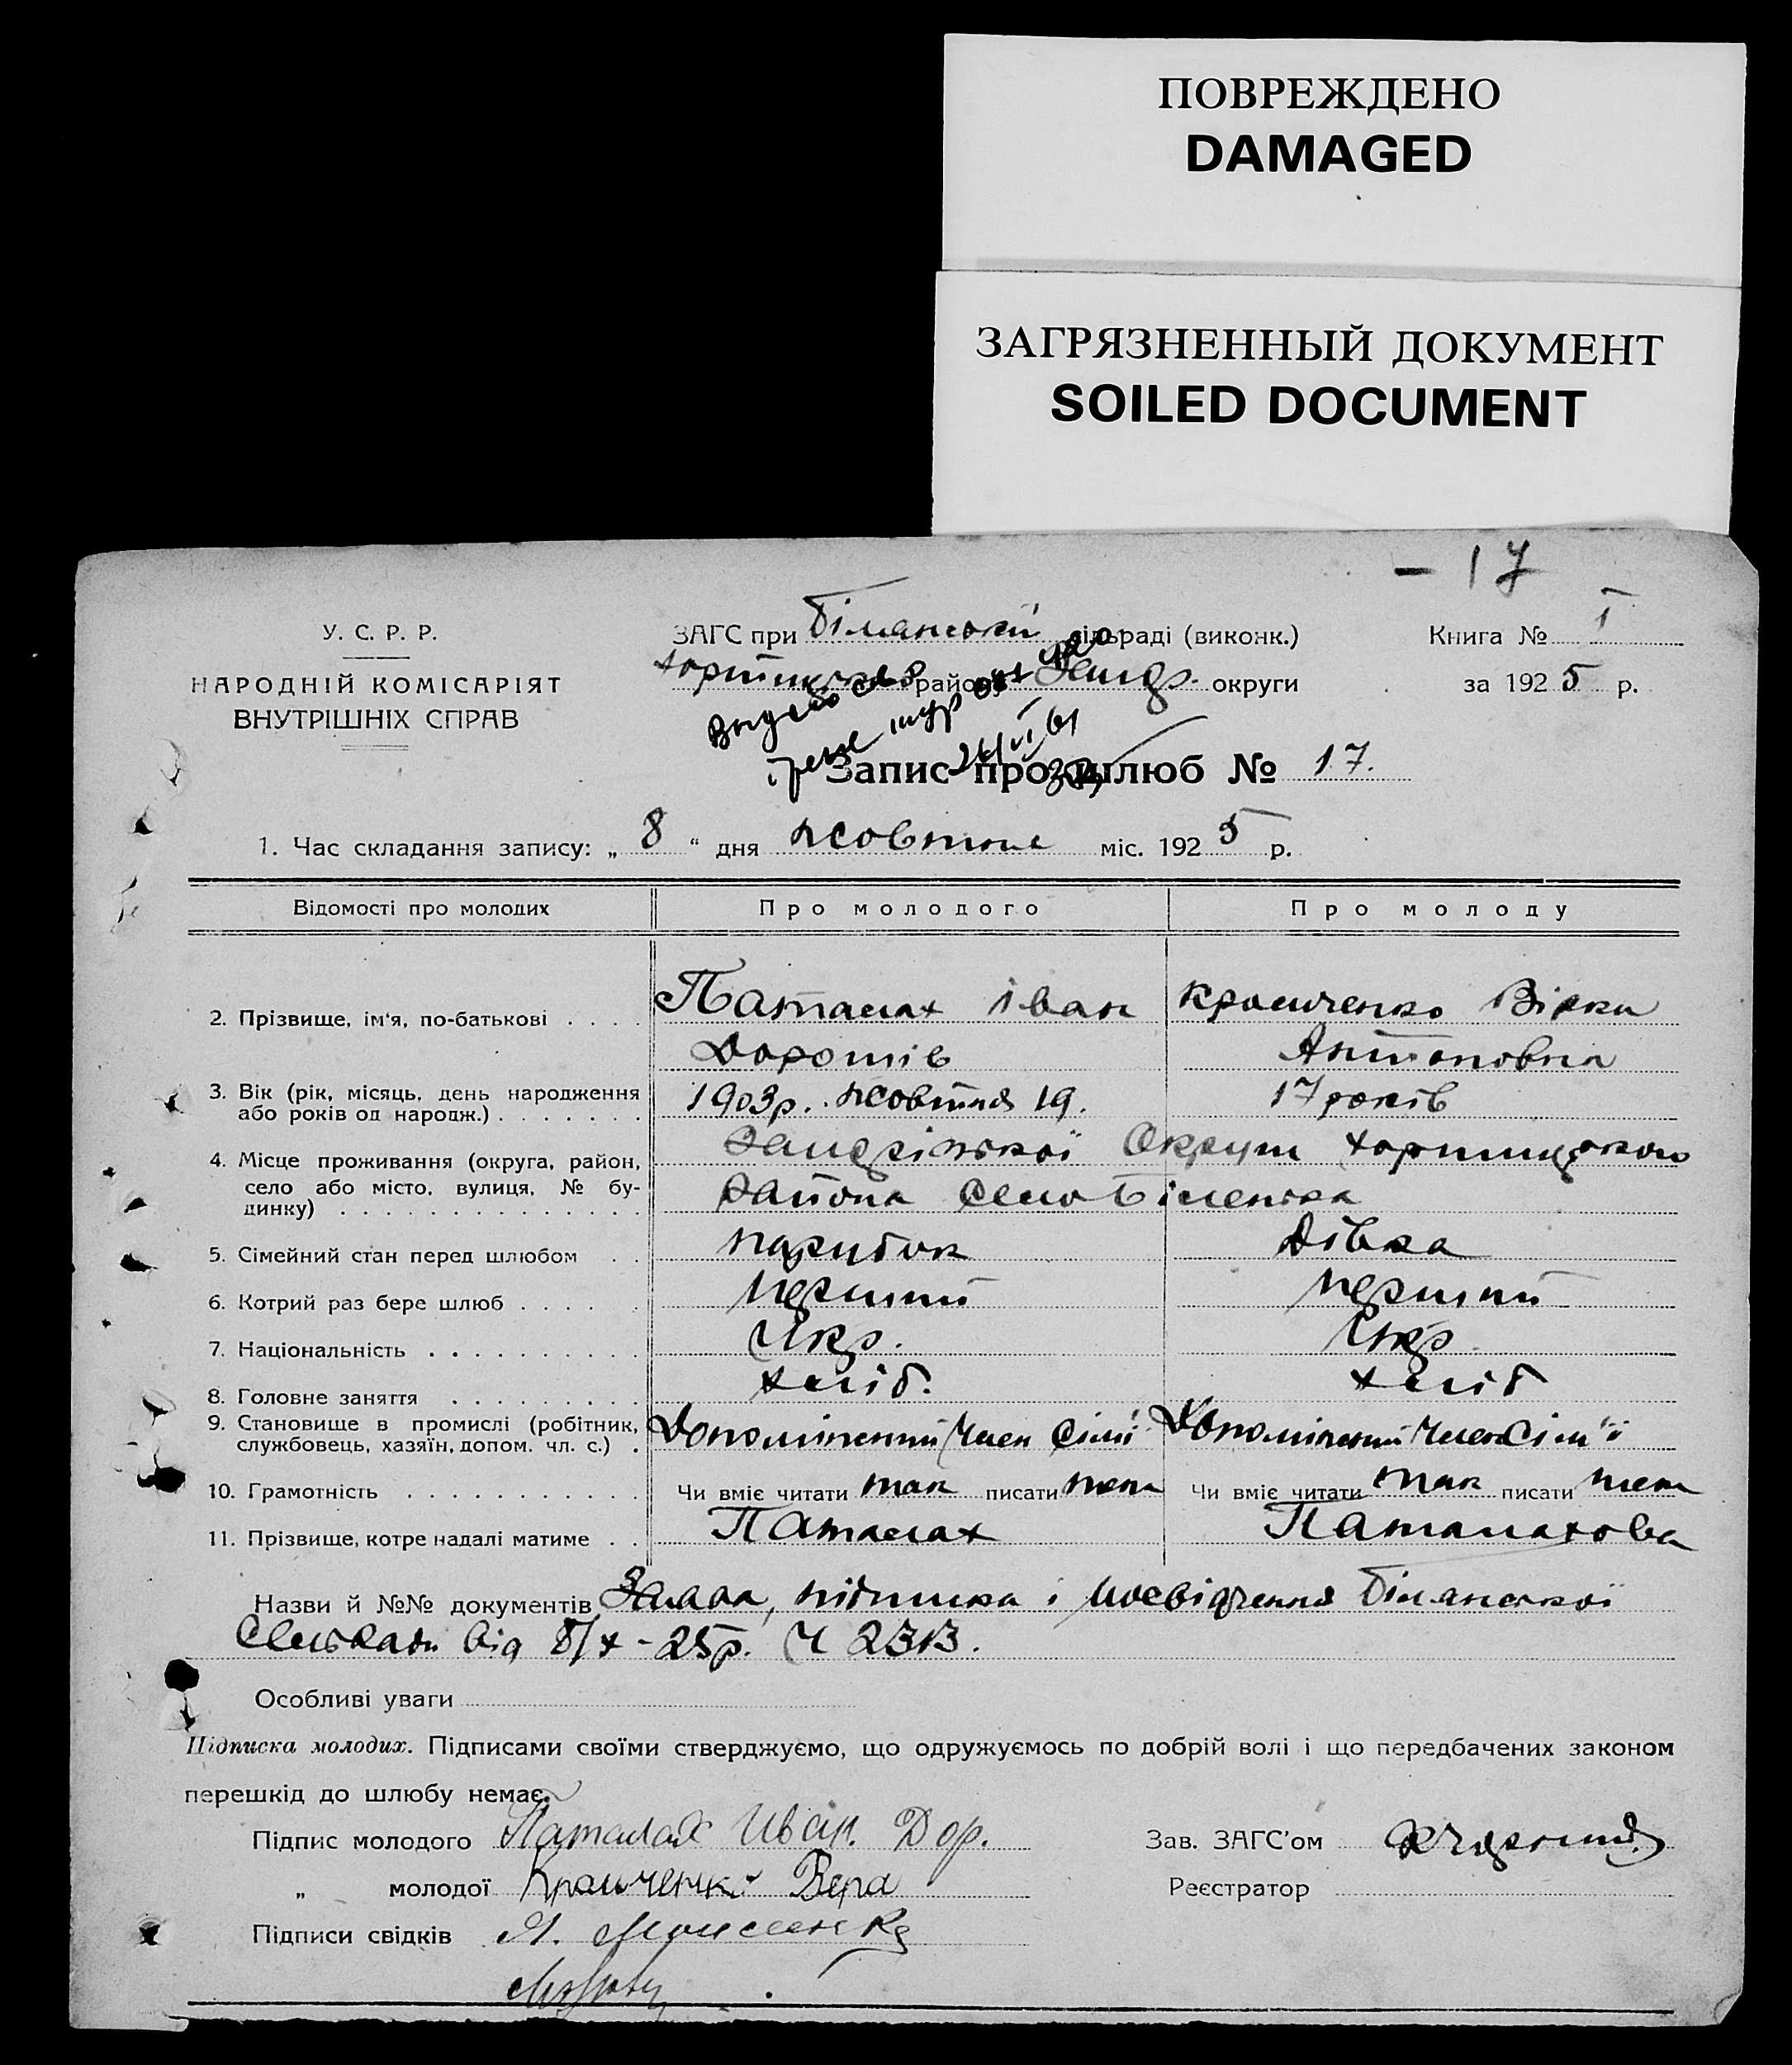 ПОВРЕЖДЕНО
DAMAGED
ЗАГРЯЗНЕННЫЙ ДОКУМЕНТ
SOILED DOCUMENT
– 17
У. С. Р. Р.
НАРОДНІЙ КОМІСАРІЯТ
ВНУТРІШНІХ СПРАВ
ЗАГС при Біляньскій сільраді (виконк.)
района Запор. округи
Книга № I
за 1925 р.
Запис про шлюб № 17.
1. Час складання запису: „ 8 “ дня жовтня міс. 1925 р.
Відомості про молодих Про молодого Про молоду
2. Прізвище, ім'я, по-батькові . . . . Паталах Іван Кромченко Вірка
Дорошів Антоновна
3. Вік (рік, місяць, день народження або років од народж.) . . . . . . . 1903р. жовтня 19. 17 років
4. Місце проживання (округа, район, село або місто, вулиця, № будинку) . . . . . . . . . . . . . Округи Хортицького
Района Село Біленька
5. Сімейний стан перед шлюбом . . парубок Дівка
6. Котрий раз бере шлюб . . . . . перший перший
7. Національність . . . . . . . . . . Укр. Укр
8. Головне заняття . . . . . . . . . хліб. хліб
9. Становище в промислі (робітник, службовець, хазяїн, допом. чл. с.) . Допоміжний Член Сімї Допоміжний Член Сім'ї
10. Грамотність . . . . . . . . . . . Чи вміє читати так писати теж Чи вміє читати так писати теж
11. Прізвище, котре надалі матиме . . Паталах Паталахова
Назви й №№ документів Заява, підписка і посвідчення Білянської
Сельради від 8/х – 25р. Ч 2313.
Особливі уваги
Підписка молодих. Підписами своїми стверджуємо, що одружуємось по добрій волі і що передбачених законом
перешкід до шлюбу немає.
Підпис молодого Паталах Иван. Дор.
„ молодої Кромченко Вера
Зав. ЗАГС'ом
Реєстратор
Підписи свідків Я. Моисенко